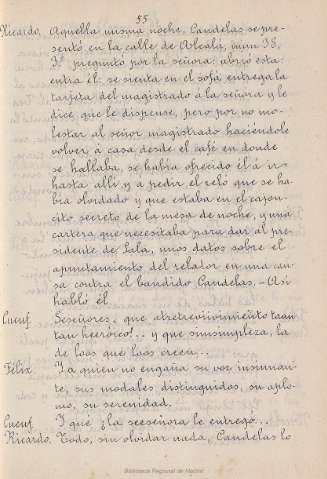 55
Ricardo. Aquella misma noche, Candelas se pre-
sentó en la calle de Alcalá, num 38,
3º preguntó por la señora: abrió esta:
entra él: se sienta en el sofá, entrega la
tarjeta del magistrado á la señora y le
dice, que le dispense, pero por no mo-
lestar al señor magistrado haciéndole
volver á casa desde el café en donde
se hallaba, se habia ofrecido él á ir
hasta allí y á pedir el reló que se ha-
bia olvidado y que estaba en el cajon-
cito secreto de la mesa de noche, y una
cartera que necesitaba para dar al pre-
sidente de Sala, unos datos sobre el
apuntamiento del relador en una cau-
sa contra el bandido Candelas,- Así
habló él.
Seseñores, que atretrevivimiento taan
tan heeróico!.. y que simsimpleza, la
de loos que loos creen...
Félix. Ya quien no engaña su voz insinuan-
te, sus modales distinguidos, su aplo-
mo, su serenidad.
Y que ¿la seeseñora le entregó...
Ricardo. Todo, sin olvidar nada, Candelas lo
Biblioteca Regional de Madrid